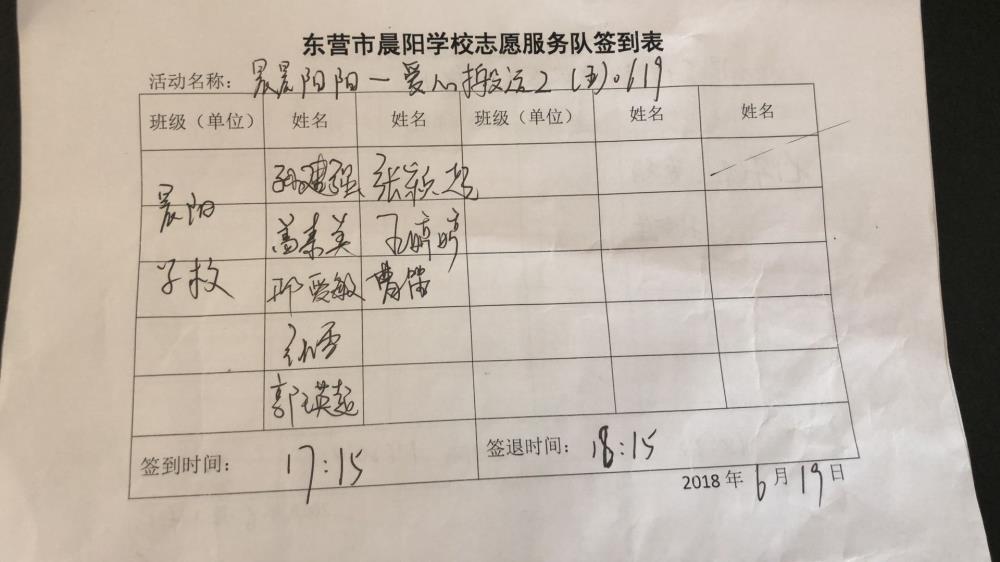 东营市晨阳学校志愿服务队签到表
活动名称: 晨晨阳阳一爱心搬运2(五)0619
班级（单位） 姓名 姓名 班级（单位） 姓名 姓名
晨阳 孙建强 张颖超
盖素英 王婷婷
学校 邱爱敏 曹蕾
郭瑛超
签到时间: 17:15 签退时间: 18:15
2018年6月19日